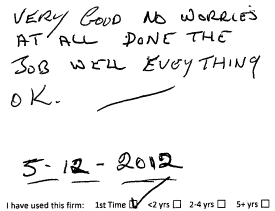 VERY GOOD NO WORRIES
AT ALL DONE THE
JOB WELL EVEYTHING
OK.
5-12-2012
I have used this firm: 1st Time ☑ <2 yrs ☐ 2-4 yrs ☐ 5+ yrs ☐